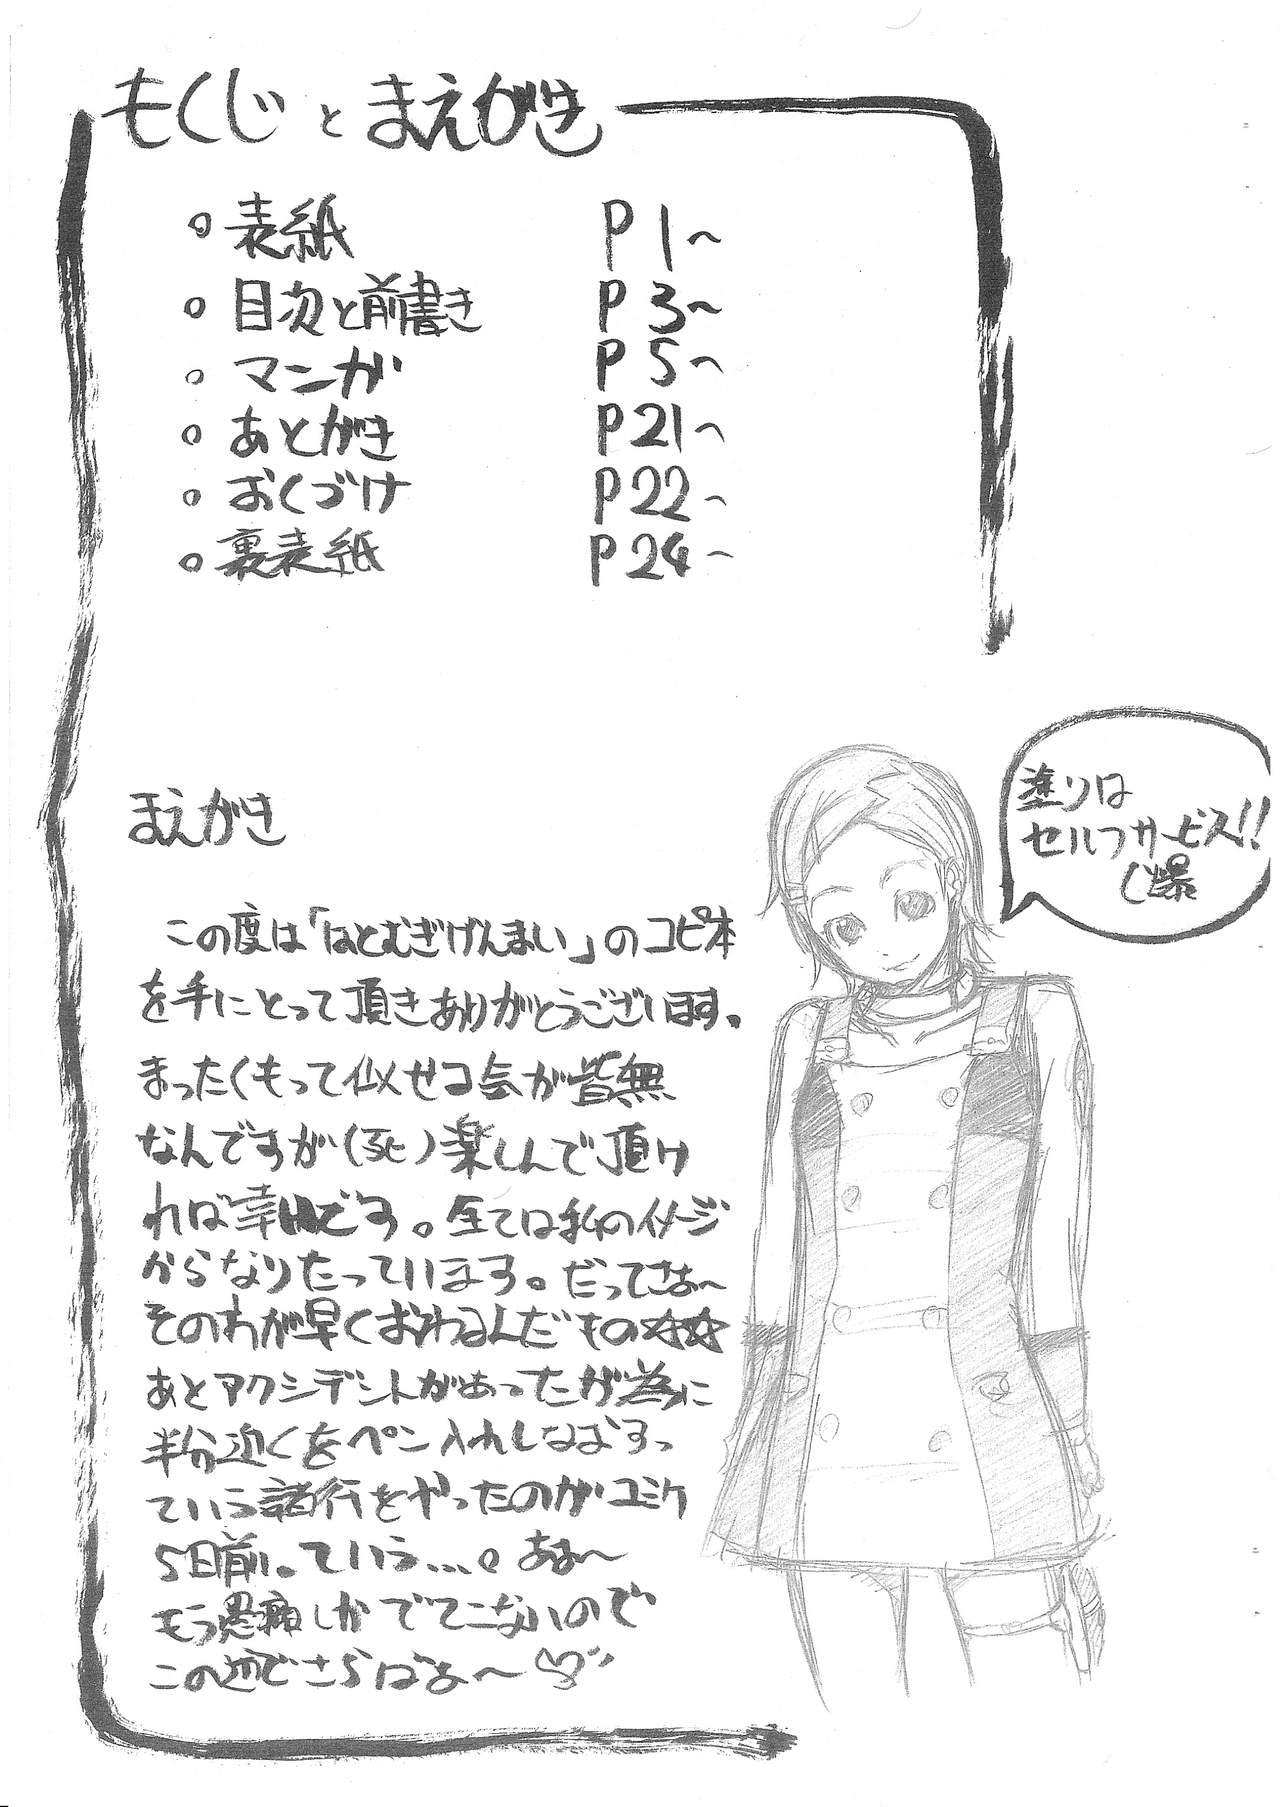 もくじとまえがき
表紙 P1~
目次と前書き P3~
マンガ P5~
あとがき P21~
おくづけ P22~
裏表紙 P24~
塗りは
セルフサービス!!
(爆
まえがき
この度は「はとむぎげんまい」のコピ本
を手にとって頂きありがとうございます。
まったくもって似せる気が皆無
なんですが(死)楽しんで頂け
れば幸いです。全ては私のイメージ
からなりたっています。だってさぁ~
そのわが早くおわるんだもの☆☆
あとアクシデントがあったが為に
半分近くをペン入れしなおすっ
ていう諸行をやったのがコミケ
5日前。ていう…。あぁ~
もう愚痴しかでてこないので
この辺でさらばだ~